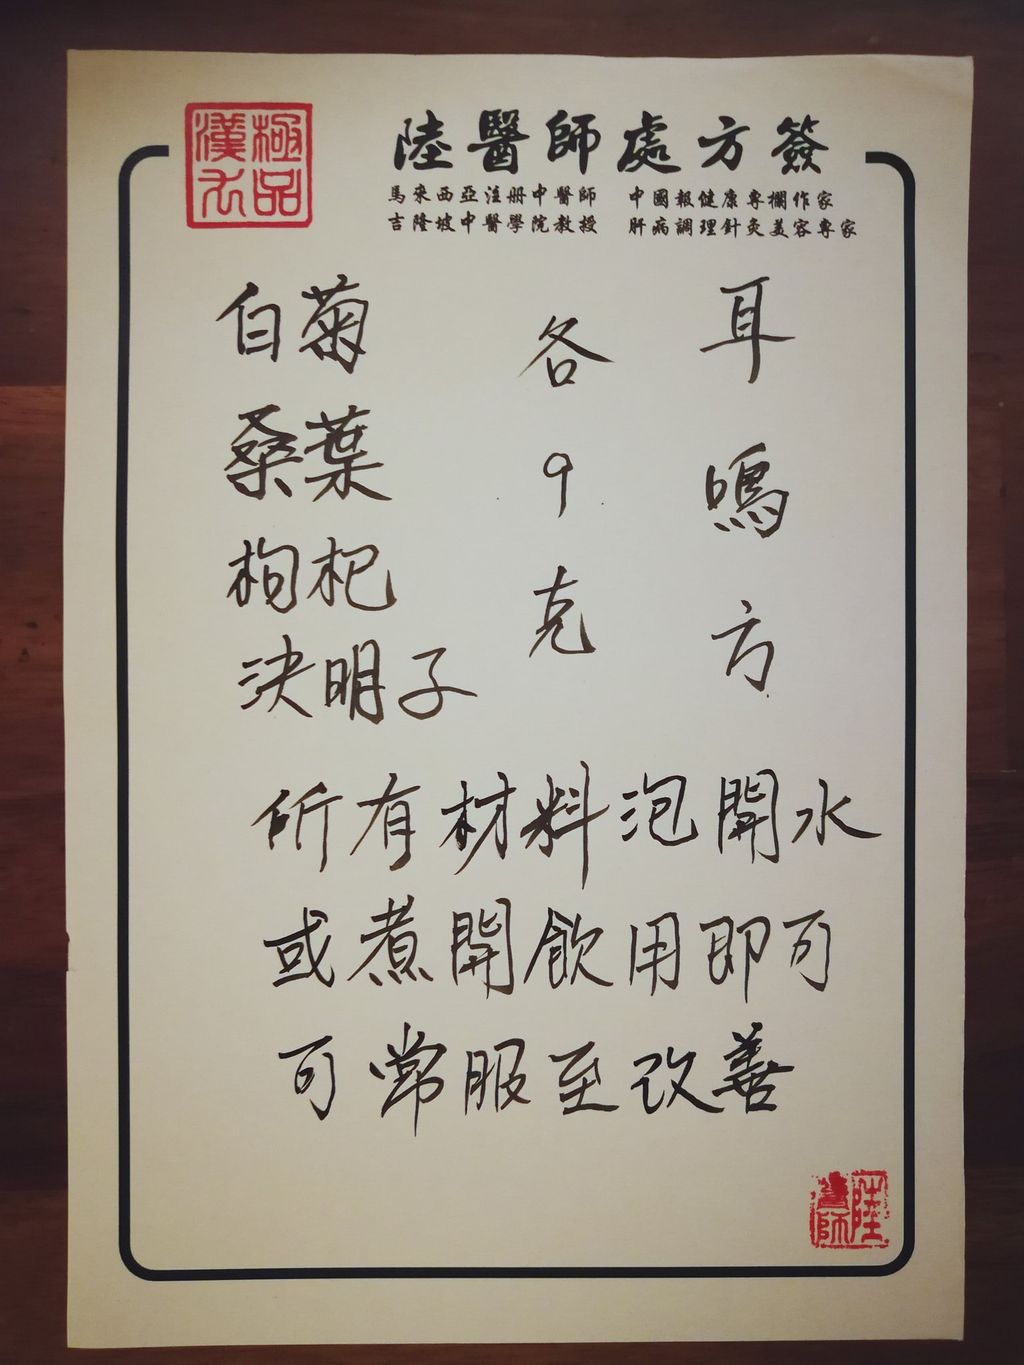 極品
漢方
陸醫師處方簽
馬來西亞注册中醫師 中國報健康專欄作家
吉隆坡中醫學院教授 肝病調理針灸美容專家
耳鳴方
各9克
白菊
桑葉
枸杞
決明子
所有材料泡開水
或煮開飲用即可
可常服至改善
陸醫師